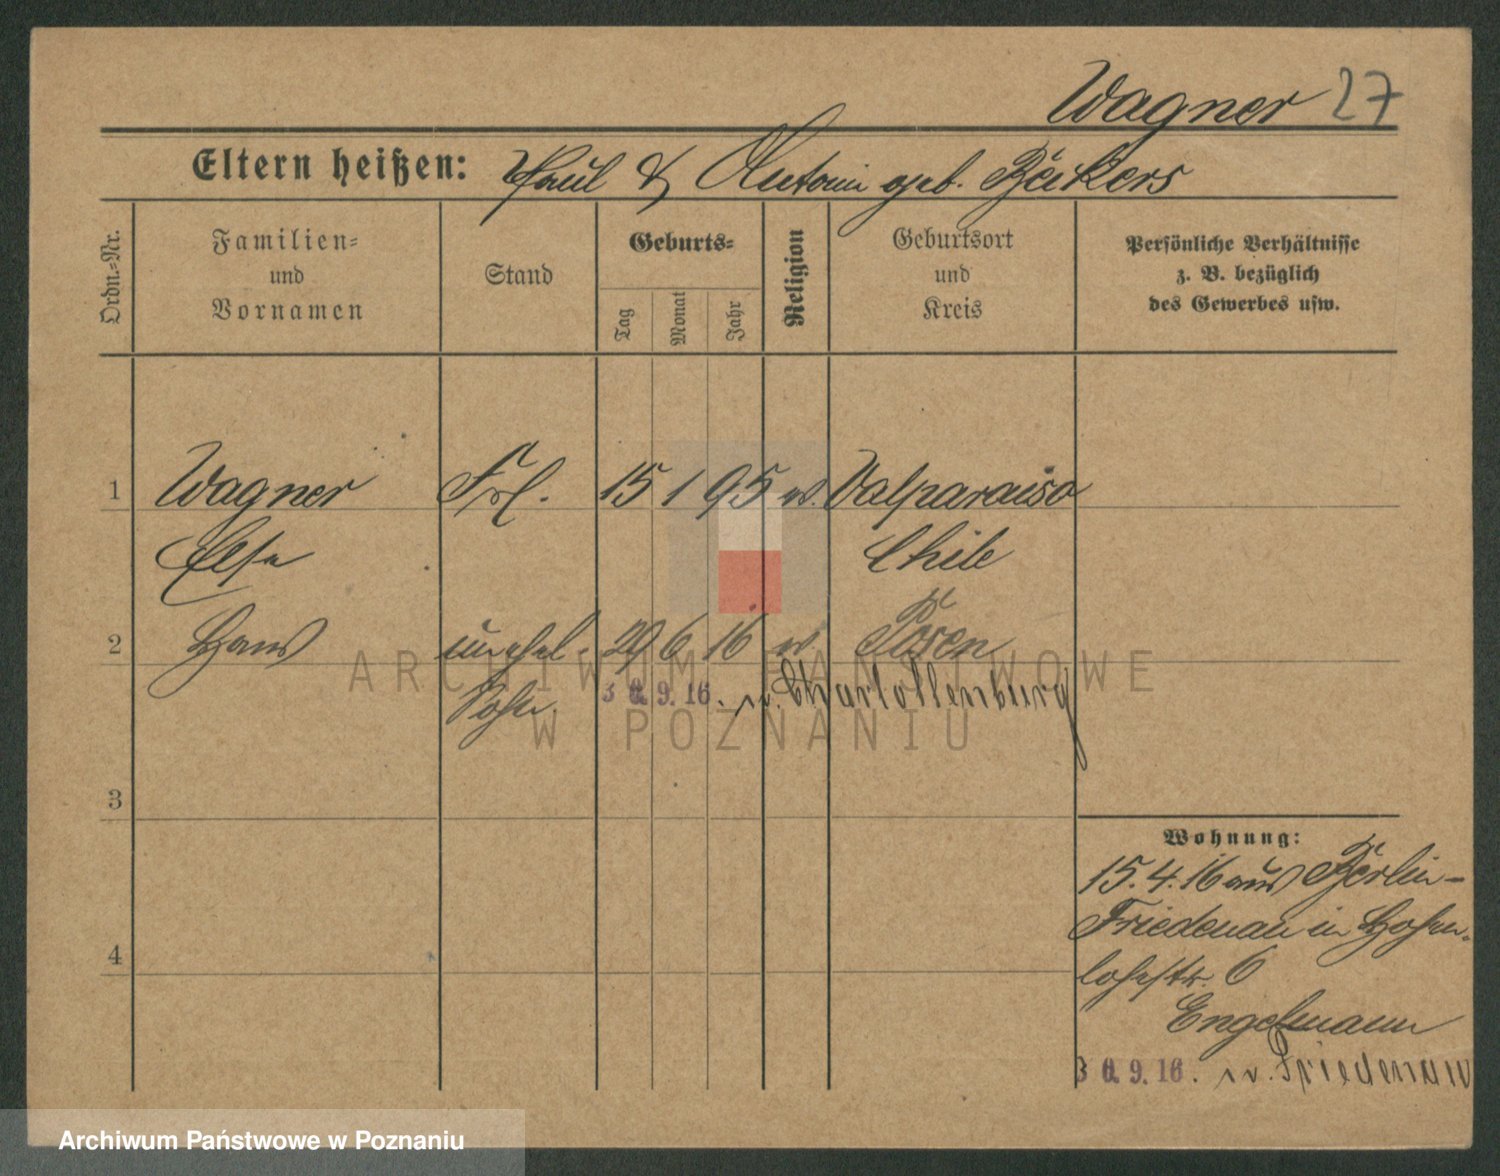 Wagner 27
Eltern heißen: Paul & Antonie geb. Beckers
Ordn.-Nr.
Familien-
und
Vornamen
Stand
Geburts-
Tag
Monat
Jahr
Religion
Geburtsort
und
Kreis
Persönliche Verhältnisse
z. B. bezüglich
des Gewerbes usw.
1 Wagner Frl. 15 1 95 Valparaiso
Else Chile
2 Hans unehel. 29 6 16 Posen
Sohn. 30. 9. 16. n. Charlottenburg
3
4
Wohnung:
15.4.16 aus Berlin-
Friedenau in Hohen-
lohestr. 6
Engelmann
30. 9. 16. n. Friedenau
ARCHIWUM PAŃSTWOWE
W POZNANIU
Archiwum Państwowe w Poznaniu